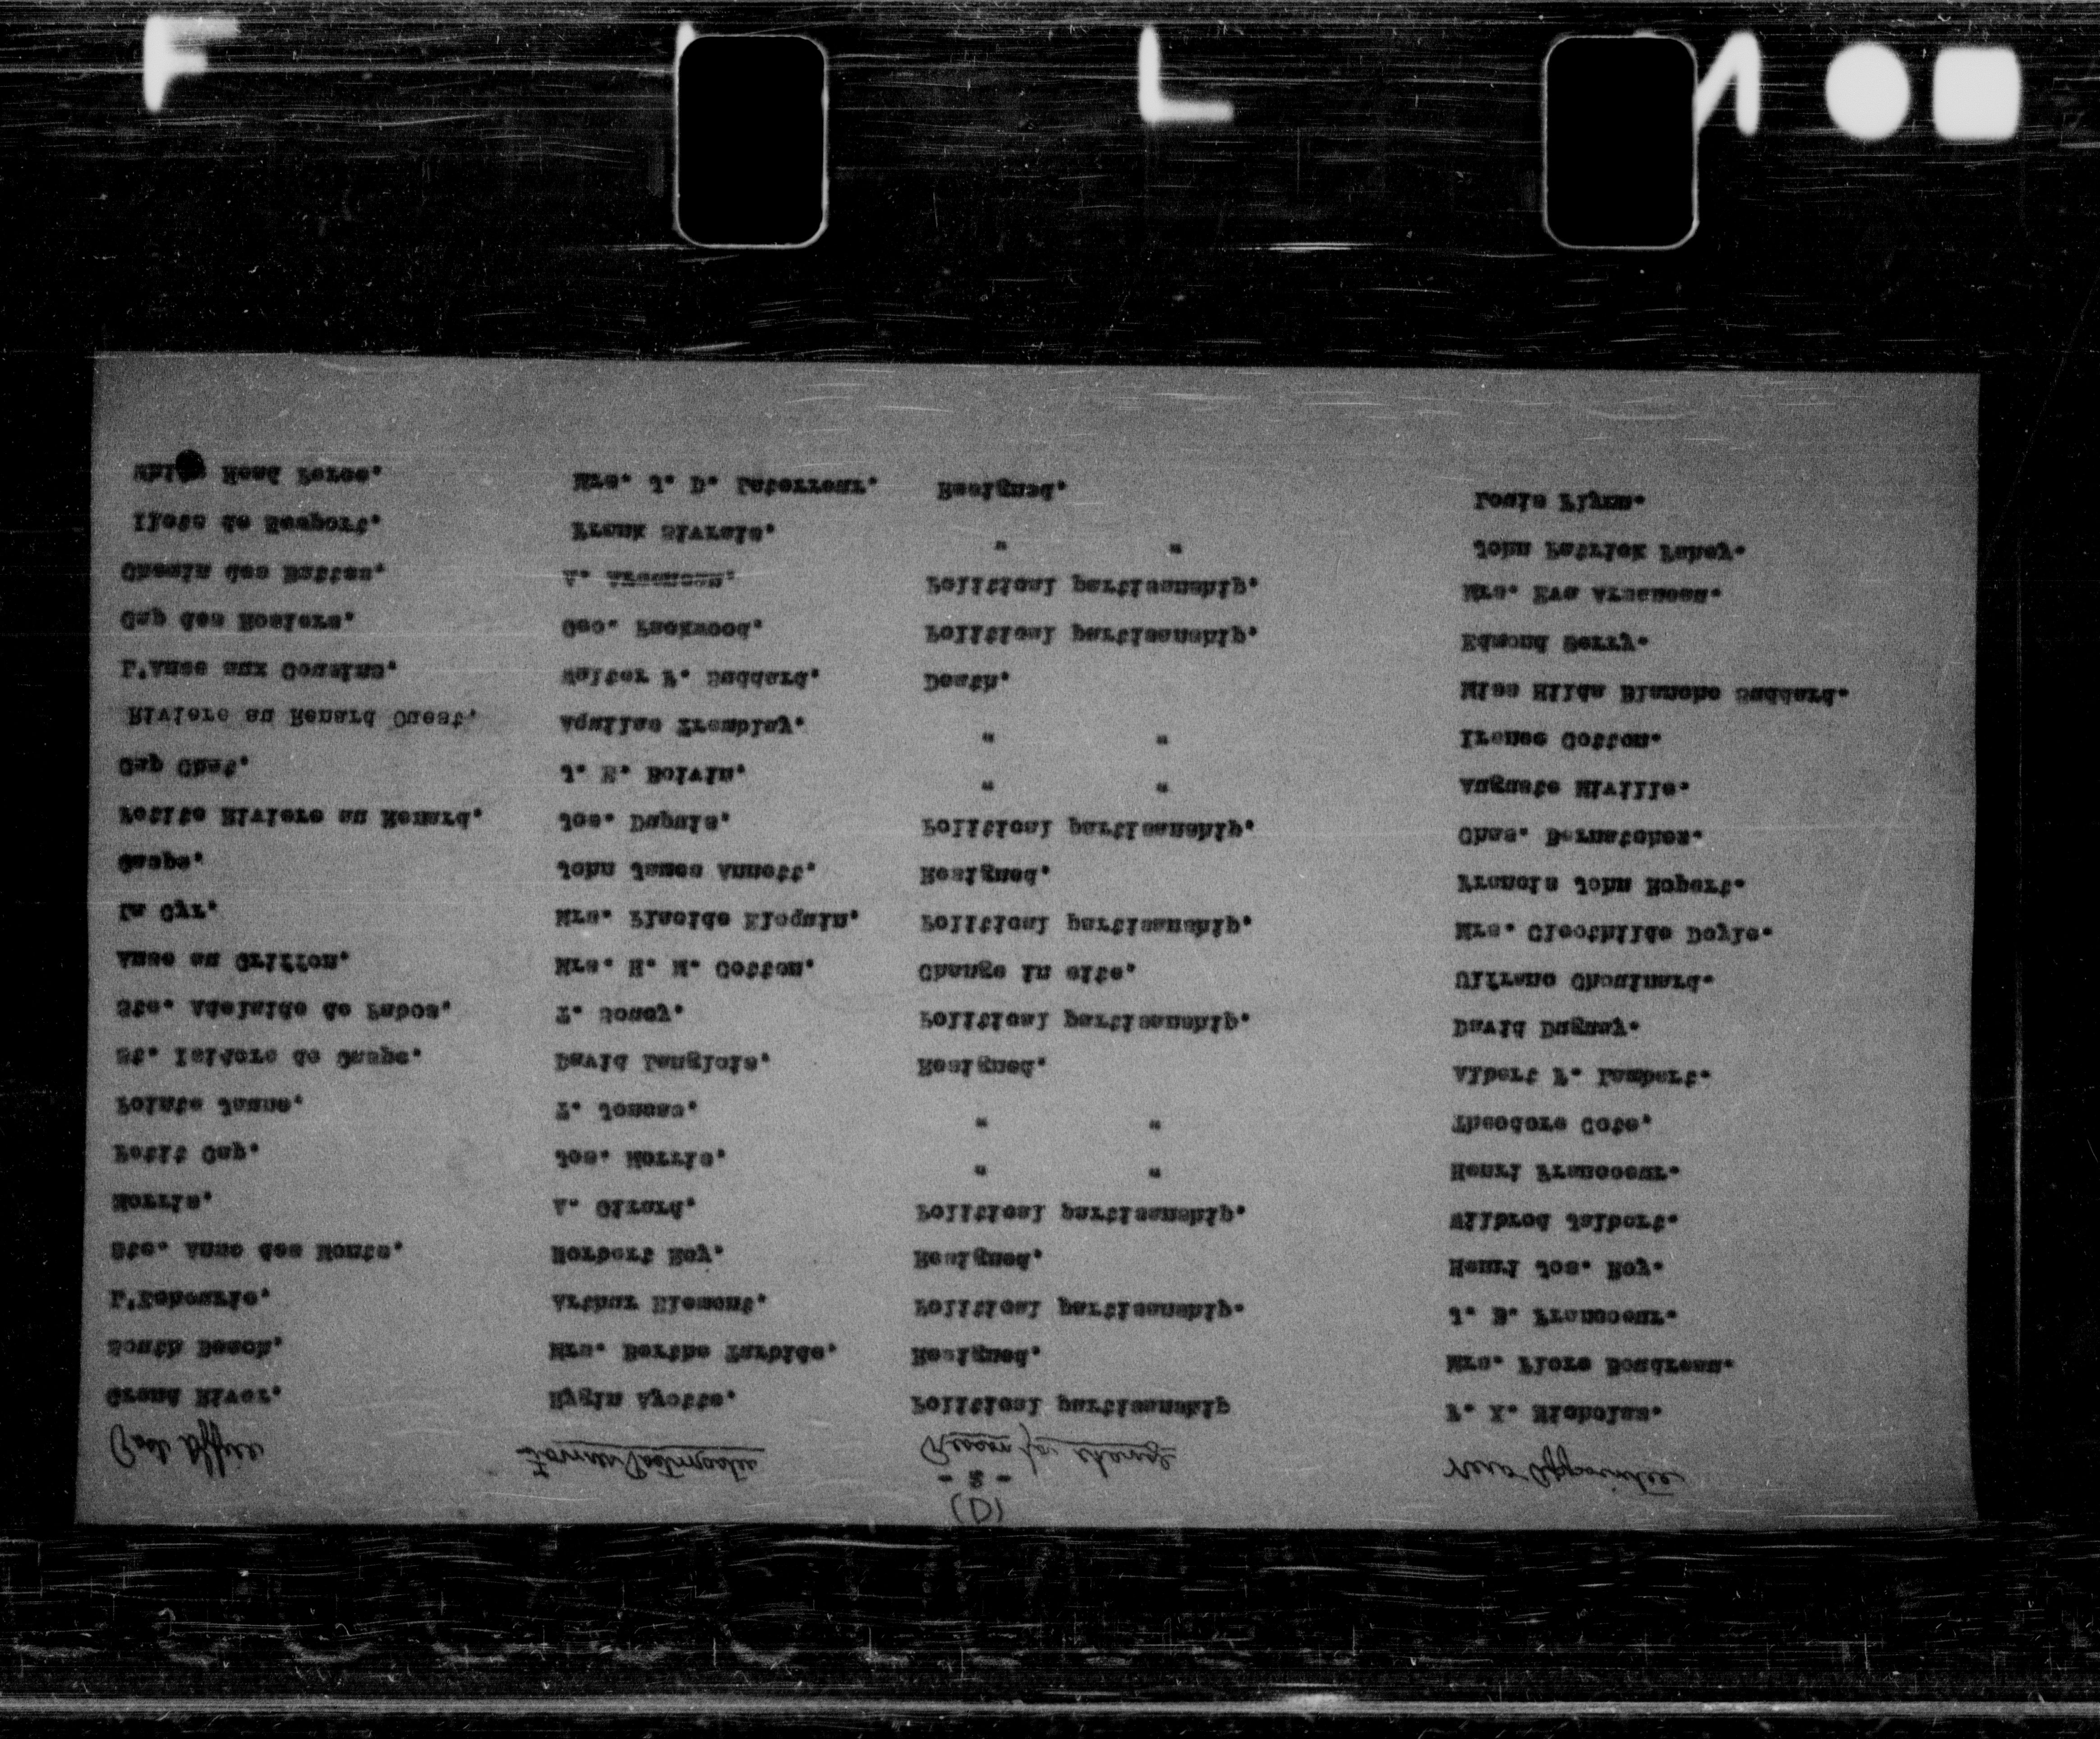 (D)
- 2 -
Post Office Former Postmaster Reason for change New Appointee
Grand River. Hygin Ayotte. Political partisanship F. X. Nicholas.
South Beach. Mrs. Berthe Tarbide. Resigned. Mrs. Flore Boudreau.
L'Echourie. Arthur Element. Political partisanship. J. E. Francoeur.
Ste. Anne des Monts. Norbert Roy. Resigned. Henri Jos. Roy.
Morris. A. Girard. Political partisanship. Wilbrod Jalbert.
Petit Cap. Jos. Morris. " " Henri Francoeur.
Pointe Jaune. T. Jonass. " " Theodore Cote.
St. Isidore de Gaspe. David Langlois. Resigned. Albert F. Lambert.
Ste. Adelaide de Pabos. T. Soucy. Political partisanship. David Duguay.
Anse au Griffon. Mrs. H. M. Cotton. Change in site. Ulfranc Chouinard.
La Cyr. Mrs. Placide Eloquin. Political partisanship. Mrs. Cleothilde Doyle.
Gaspe. John James Annett. Resigned. Francis John Robert.
Petite Riviere au Renard. Jos. Dupuis. Political partisanship. Chas. Bernatchez.
Cap Chat. J. E. Boivin. " " Auguste Miville.
Riviere au Renard Ouest. Aquilas Tremblay. " " Irenee Cotton.
L'Anse aux Cousins. Walter F. Suddard. Death. Miss Hilda Blanche Suddard.
Cap des Rosiers. Geo. Packwood. Political partisanship. Edmond Berry.
Chemin des Buttes. A. Arseneau. Political partisanship. Mrs. Eva Arseneau.
Ilots de Newport. Frank Sivrais. " " John Patrick Fahey.
White Head Perce. Mrs. J. D. Laterreur. Resigned. Louis Flynn.
F L